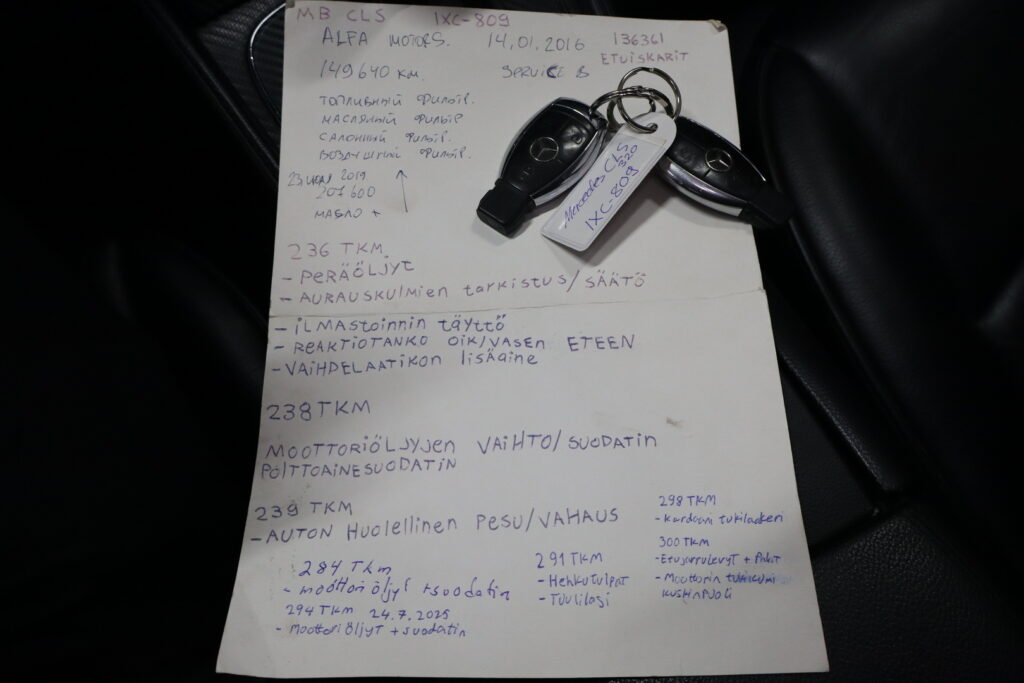 MB CLS IXC-809
ALFA MOTORS. 14,01.2016 136361
ETUISKARIT
149640 KM. SERVICE B
ТОПЛИВНЫЙ ФИЛЬТР.
МАСЛЯНЫЙ ФИЛЬТР
САЛОННЫЙ ФИЛЬТР.
ВОЗДУШНЫЙ ФИЛЬТР.
23 2019
207600
МАСЛО +
Mercedes CLS
320
IXC-809
236 TKM.
- PERÄÖLJYT
- AURAUSKULMIEN tarkistus/SÄÄTÖ
- ILMAStoinnin täyttö
- REAKTIOTANKO OIK/VASEN ETEEN
- VAIHDELAATIKON lisäaine
238 TKM
MOOTTORIÖLJYJEN VAIHTO/SUODATIN
POLTTOAINESUODATIN
239 TKM
- AUTON HUOLELLINEN PESU/VAHAUS
284 TKM
- moottoriöljyt + suodatin
294 TKM 24.7.2025
- Moottoriöljyt + suodatin
291 TKM
- Hehkutulpat
- Tuulilasi
298 TKM
- Kardaani tukilaakeri
300 TKM
- Etujarrulevyt + Palat
- Moottorin tukikumi
kuskinpuoli